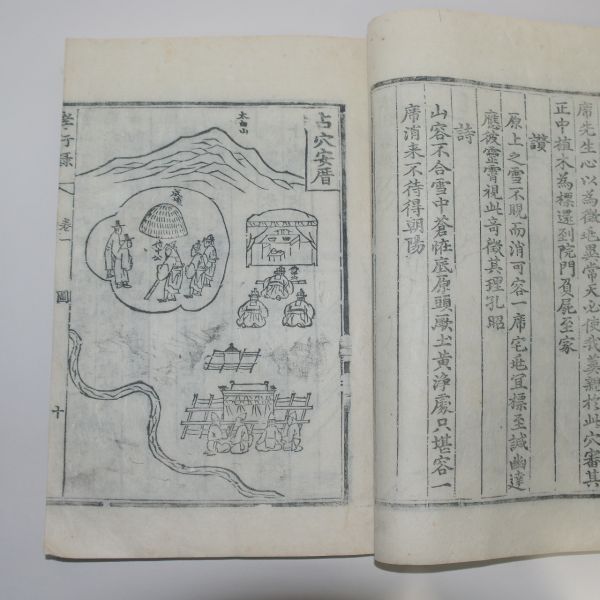 席先生心以為微地異常天必使我葬親於此穴審其
正中植木為標還到院門負屍至家
讚
原上之雪不晛而消可容一席宅地宜標至誠幽達
應彼靈霄視此奇徵其理孔昭
詩
山容不合雪中蒼恠底原頭厥土黃淨處只堪容一
席消来不待得朝陽
占穴安厝
太白山
孝行錄
卷一
圖
十